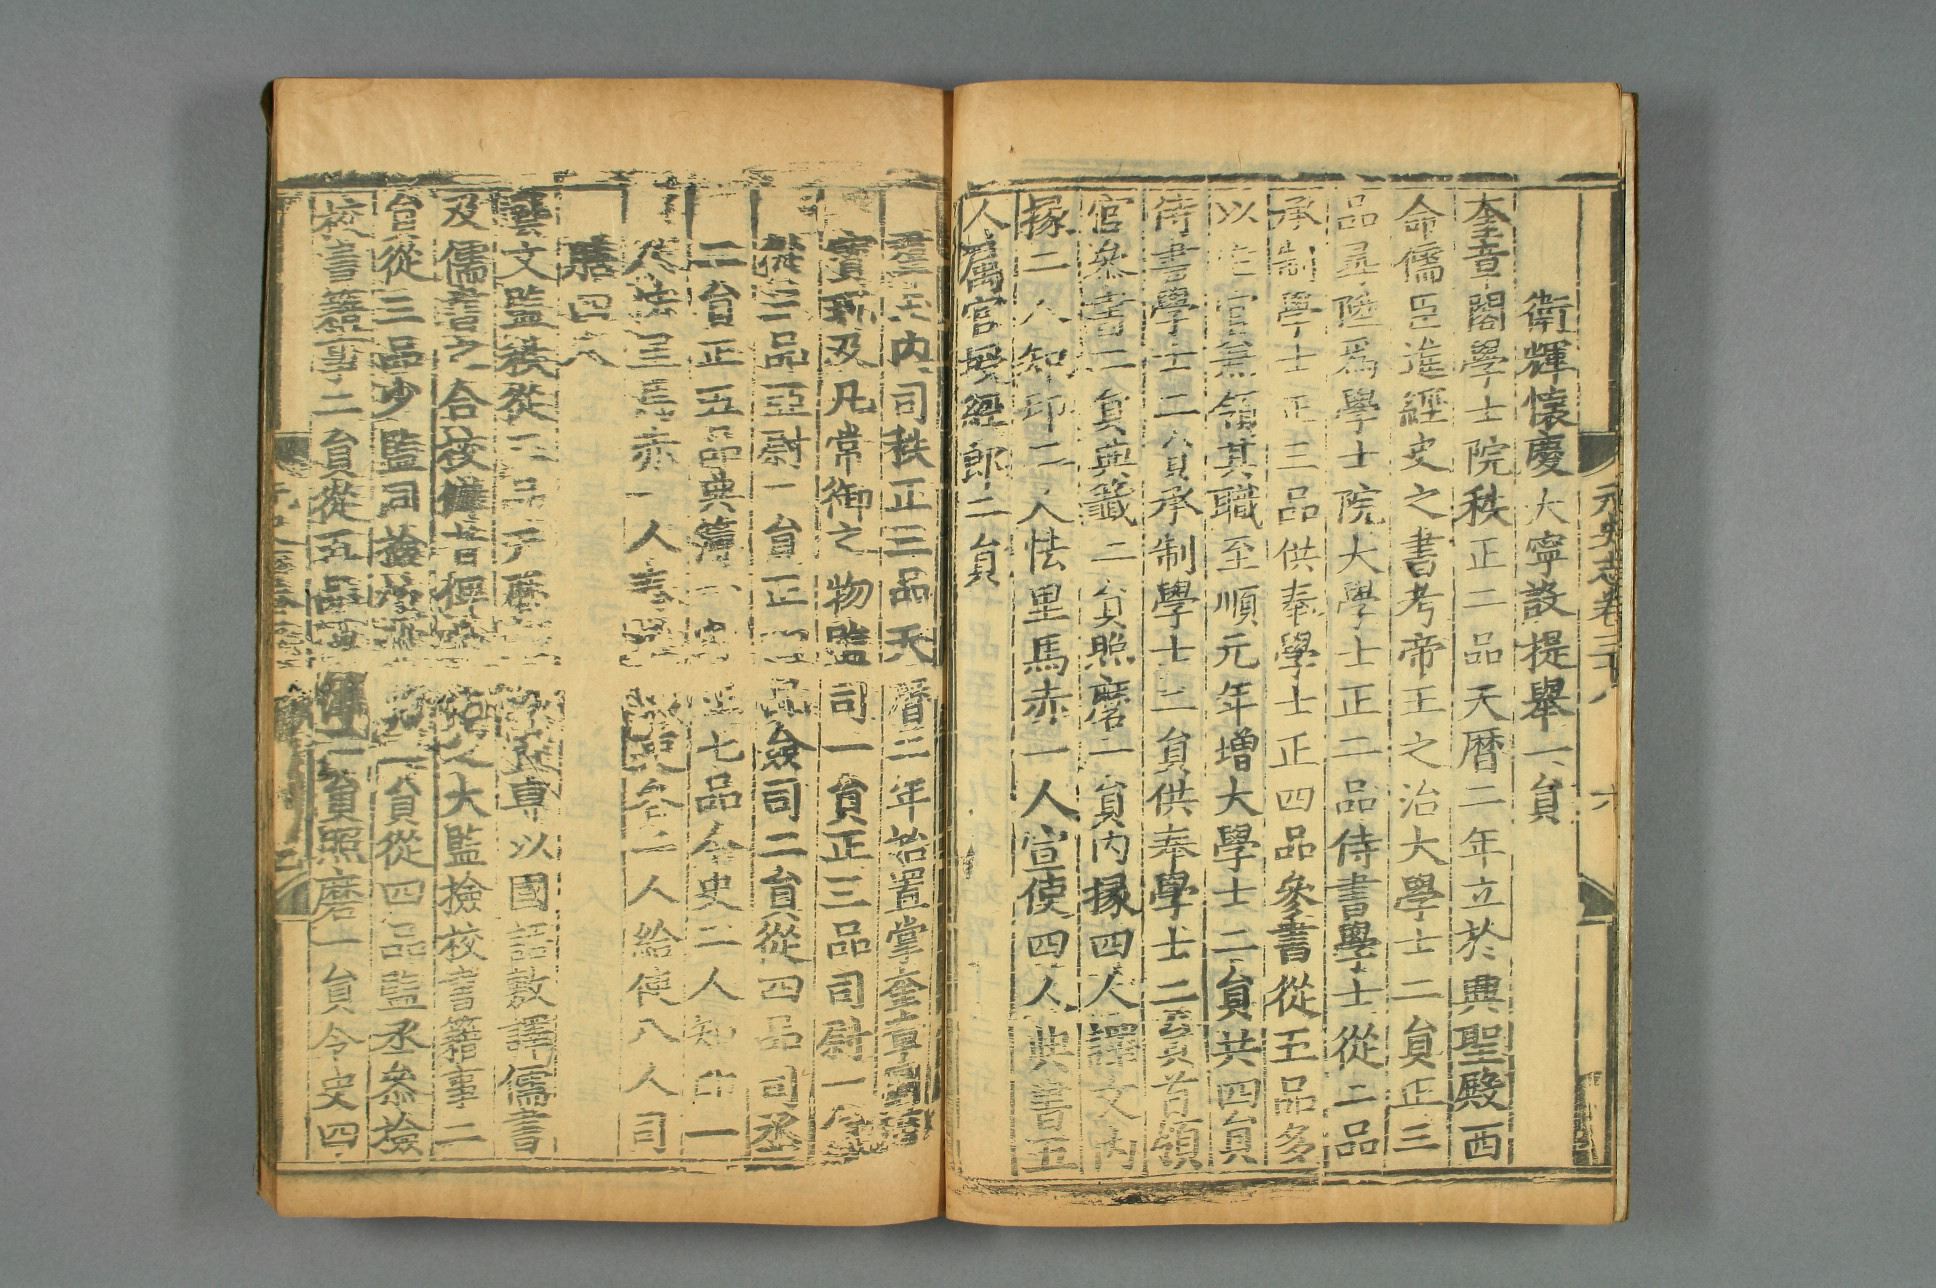 元史志卷三十八　六
衛輝懷慶大寧散提舉一員
奎章閣學士院秩正二品天曆二年立於興聖殿西
命儒臣進經史之書考帝王之治大學士二員正三
品尋陞爲學士院大學士正二品侍書學士從二品
承制學士正三品供奉學士正四品參書從五品多
以它官兼領其職至順元年增大學士二員共四員
侍書學士二員承制學士二員供奉學士二員首領
官參書二員典籤二員照磨一員內掾四人譯文內
掾二人知印二人怯里馬赤一人宣使四人典書五
人屬官授經郎二員
羣玉內司秩正三品天曆二年始置掌奎章
寶玩及凡常御之物監司一員正三品司尉一員
從三品亞尉一員正四品僉司二員從四品司丞
二員正五品典簿一員正七品令史二人知印一
人怯里馬赤一人奏差 典吏各二人給使八人司
膳四人
藝文監秩從三品天曆 專以國語敷譯儒書
及儒書之合校讎者俾 之大監檢校書籍事二
員從三品少監同檢 二員從四品監丞參檢
校書籍事二員從五品典簿一員照磨一員令史四